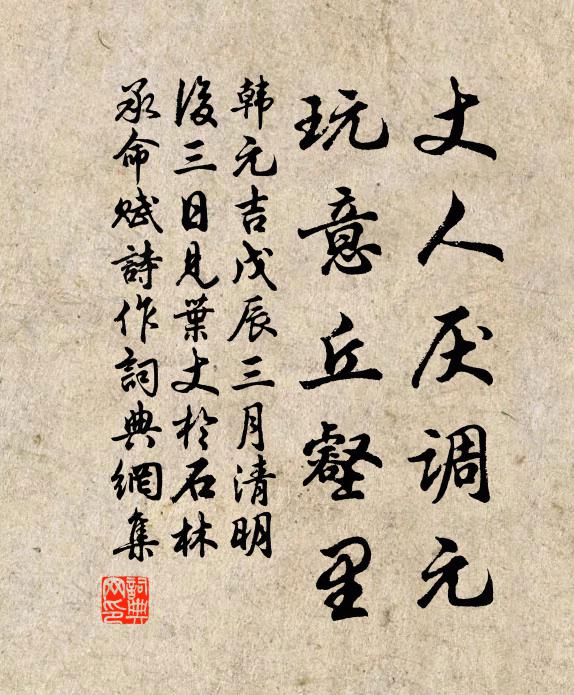 丈人厌调元
玩意丘壑里
韩元吉戊辰三月清明
後三日見葉丈於石林
承命赋詩作詞典網集
詞典
网印